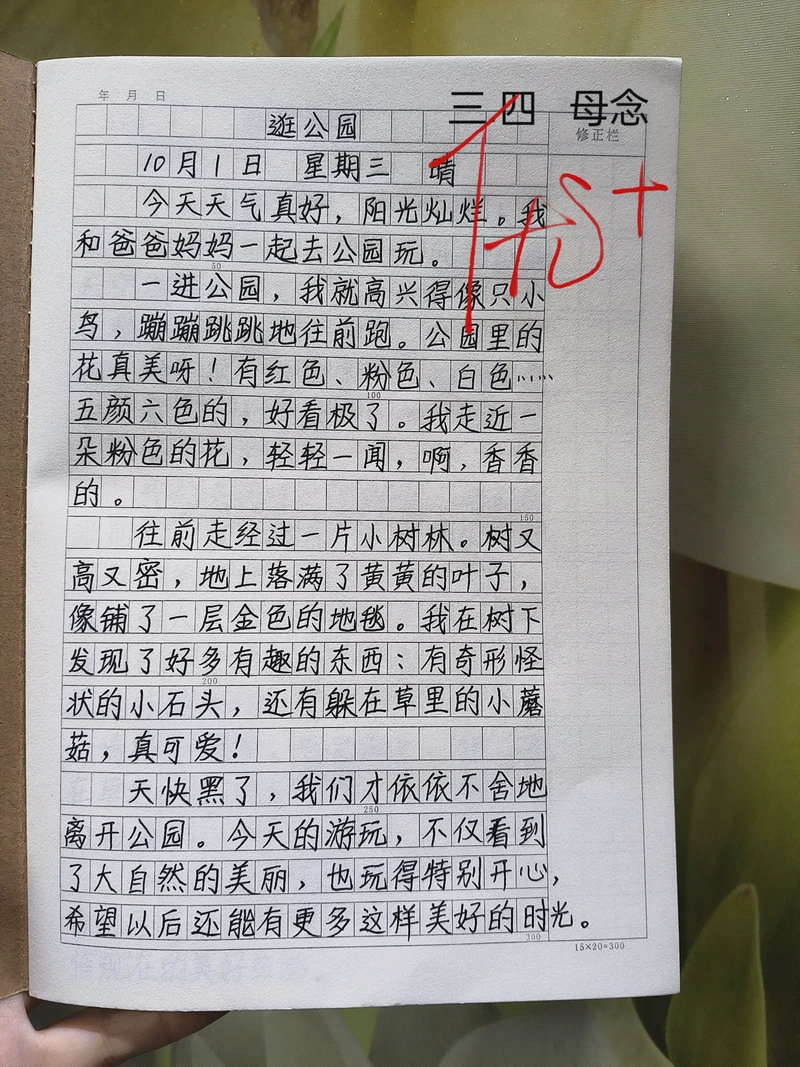 年 月 日
三 四 母念
修正栏
逛公园
10月1日 星期三 晴
今天天气真好，阳光灿烂。我
和爸爸妈妈一起去公园玩。
50
一进公园，我就高兴得像只小
鸟，蹦蹦跳跳地往前跑。公园里的
花真美呀！有红色、粉色、白色……
100
五颜六色的，好看极了。我走近一
朵粉色的花，轻轻一闻，啊，香香
的。
150
往前走经过一片小树林。树又
高又密，地上落满了黄黄的叶子，
像铺了一层金色的地毯。我在树下
发现了好多有趣的东西：有奇形怪
200
状的小石头，还有躲在草里的小蘑
菇，真可爱！
天快黑了，我们才依依不舍地
250
离开公园。今天的游玩，不仅看到
了大自然的美丽，也玩得特别开心，
希望以后还能有更多这样美好的时光。
300
15×20=300